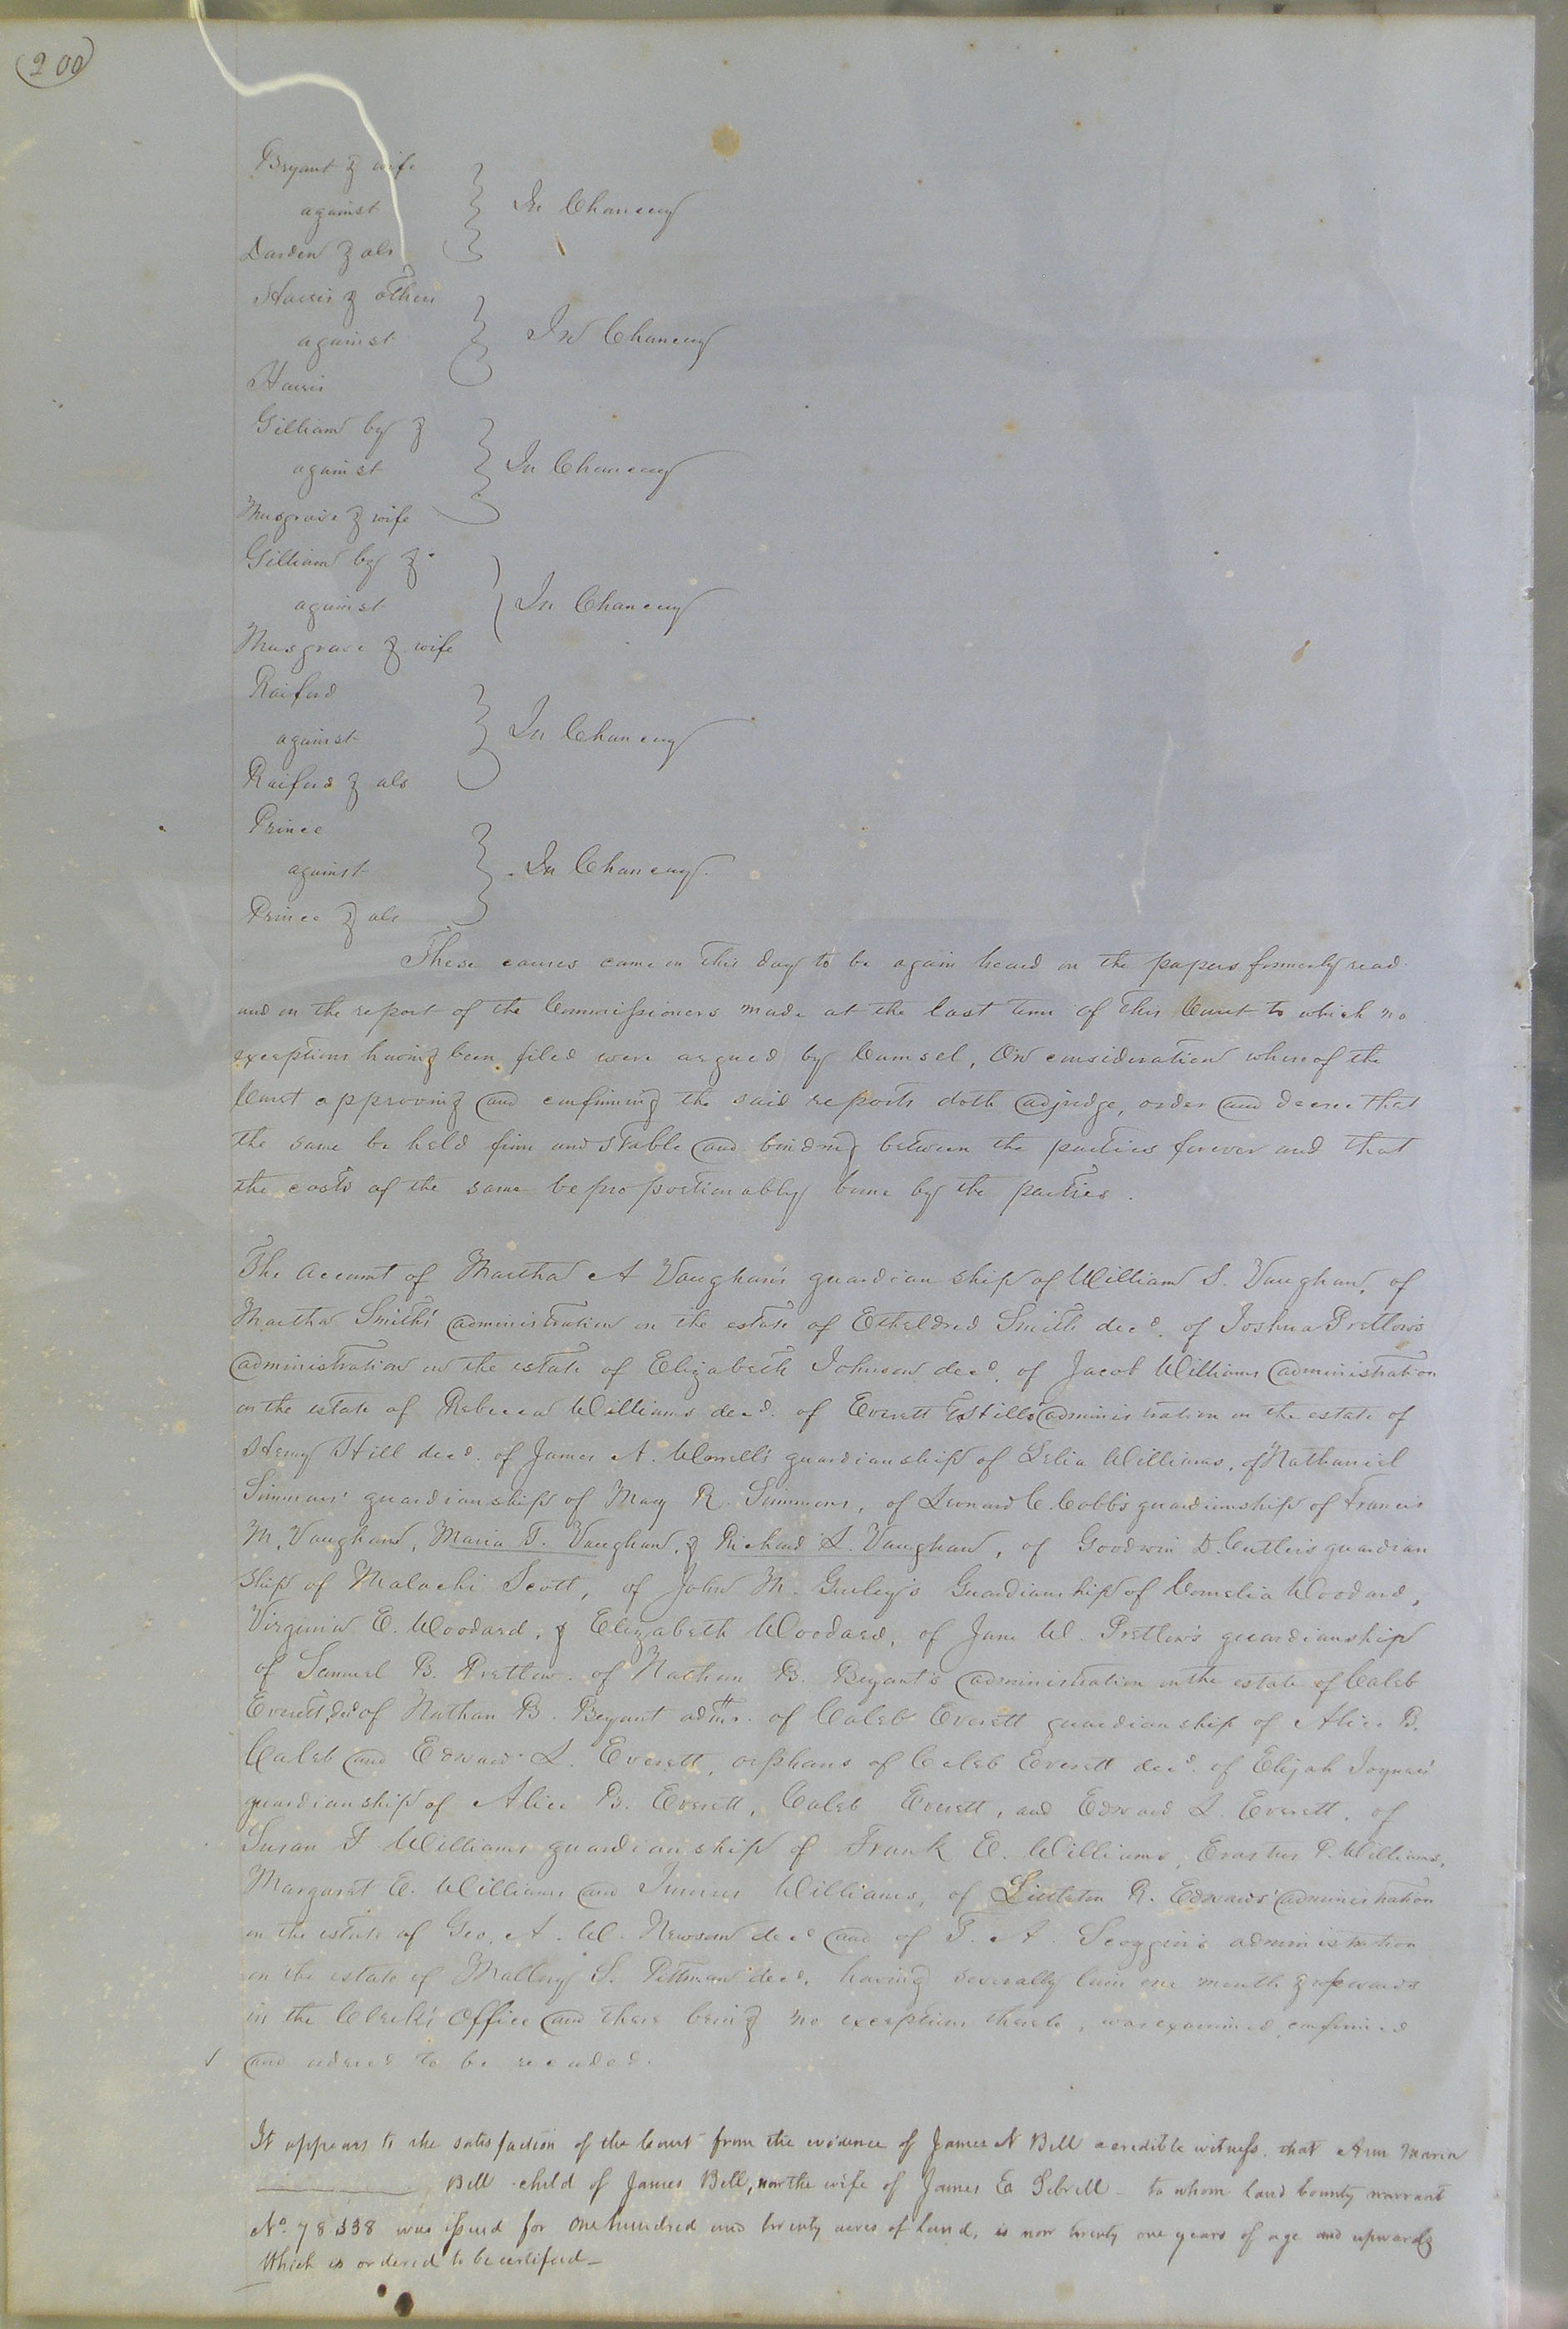 200
Bryant & wife
against } In Chancery
Darden & als
Harris & others
against } In Chancery
Harris
Gilliam by &
against } In Chancery
Musgrave & wife
Gilliam by &.
against } In Chancery
Musgrave & wife
Raiford
against } In Chancery
Raiford & als
Prince
against } In Chancery.
Prince & als
These causes came on this day to be again heard on the papers formerly read
and on the report of the Commissioners made at the last term of this Court to which no
exceptions having been filed were argued by Counsel, On consideration whereof the
Court approving and confirming the said reports doth adjudge, order and decree that
the same be held firm and stable and binding between the parties forever and that
the costs of the same be proportionably borne by the parties.
The account of Martha A Vaughan's guardianship of William S. Vaughan, of
Martha Smith's administration on the estate of Etheldred Smith decd. of Joshua Pretlow's
administration on the estate of Elizabeth Johnson decd, of Jacob Williams administration
on the estate of Rebecca Williams decd. of Everett Hills administration on the estate of
Henry Hill decd. of James A. Worrell's guardianship of Delia Williams, of Nathaniel
Simmons' guardianship of May R. Simmons, of Leonard C. Cobb's guardianship of Francis
M. Vaughan, Maria T. Vaughan, & Richard L. Vaughan, of Goodwin D. Cutler's guardian
ship of Malachi Scott, of John M. Gurley's Guardianship of Cornelia Woodard,
Virginia E. Woodard, & Elizabeth Woodard, of Jane W. Pretlow's guardianship
of Samuel B. Pretlow. of Nathan B. Bryant's administration on the estate of Caleb
Everett, decd of Nathan B. Bryant admr. of Caleb Everett guardianship of Alice B.
Caleb and Edward L. Everett, orphans of Caleb Everett decd. of Elijah Joyner's
guardianship of Alice B. Everett, Caleb Everett, and Edward L. Everett. of
Susan F Williams guardianship of Frank E. Williams, Erastus P. Williams,
Margaret E. Williams and Junius Williams, of Littleton R. Edwards' administration
on the estate of Geo. A. W. Newsom decd and of T. A. Scoggin's administration
on the estate of Mallory S. Pittman decd. having severally lain one month & upwards
in the Clerk's Office and there being no exceptions thereto, was examined, confirmed
and ordered to be recorded.
It appears to the satisfaction of the Court from the evidence of James N Bell a credible witness that Ann Maria
Bell child of James Bell, now the wife of James E Sebrell to whom land bounty warrant
No. 78.538 was issued for One hundred and twenty acres of land, is now twenty one years of age and upwards
Which is ordered to be certified—